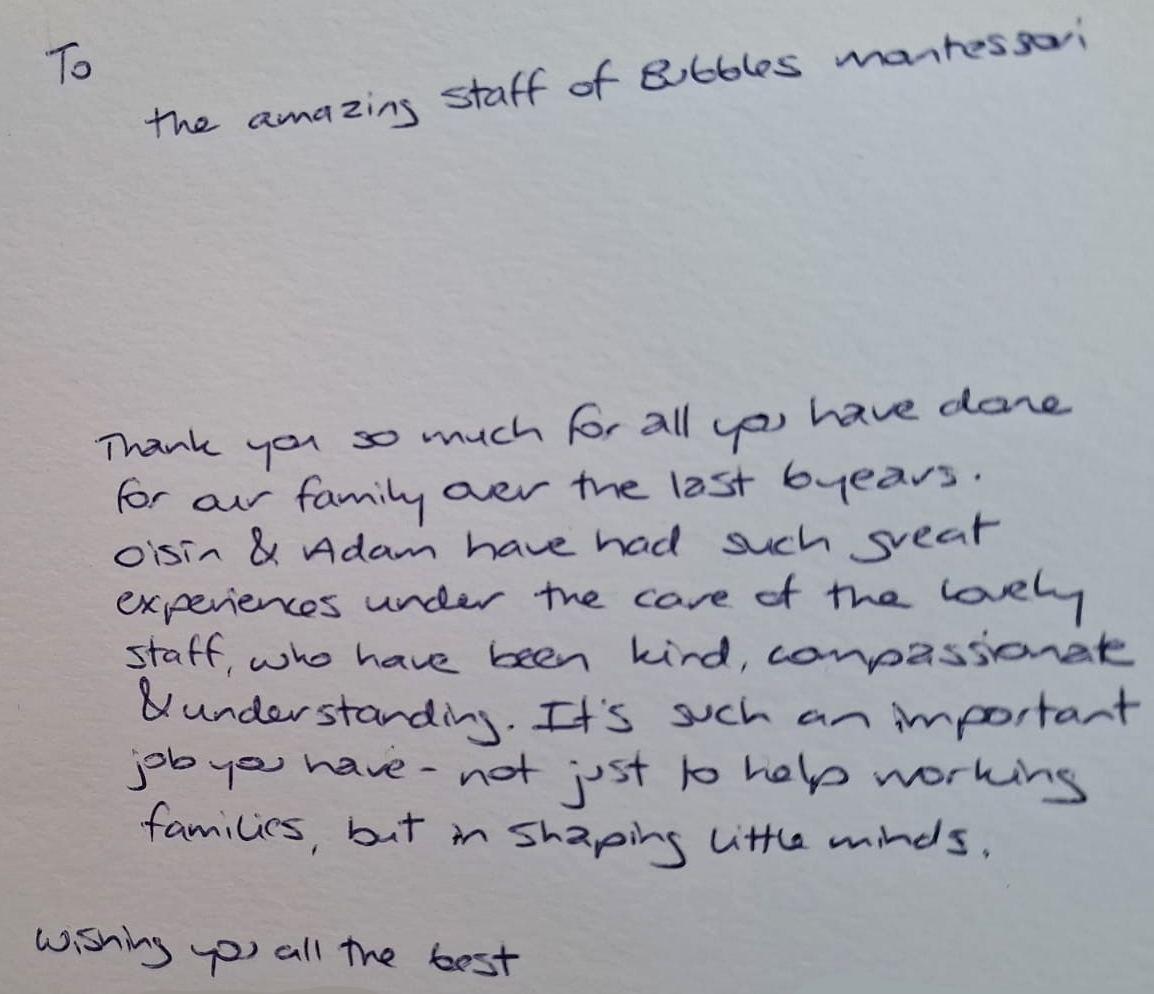 To
the amazing staff of Bubbles montessori
Thank you so much for all you have done
for our family over the last 6 years.
Oisín & Adam have had such great
experiences under the care of the lovely
staff, who have been kind, compassionate
& understanding. It's such an important
job you have - not just to help working
families, but in shaping little minds.
Wishing you all the best